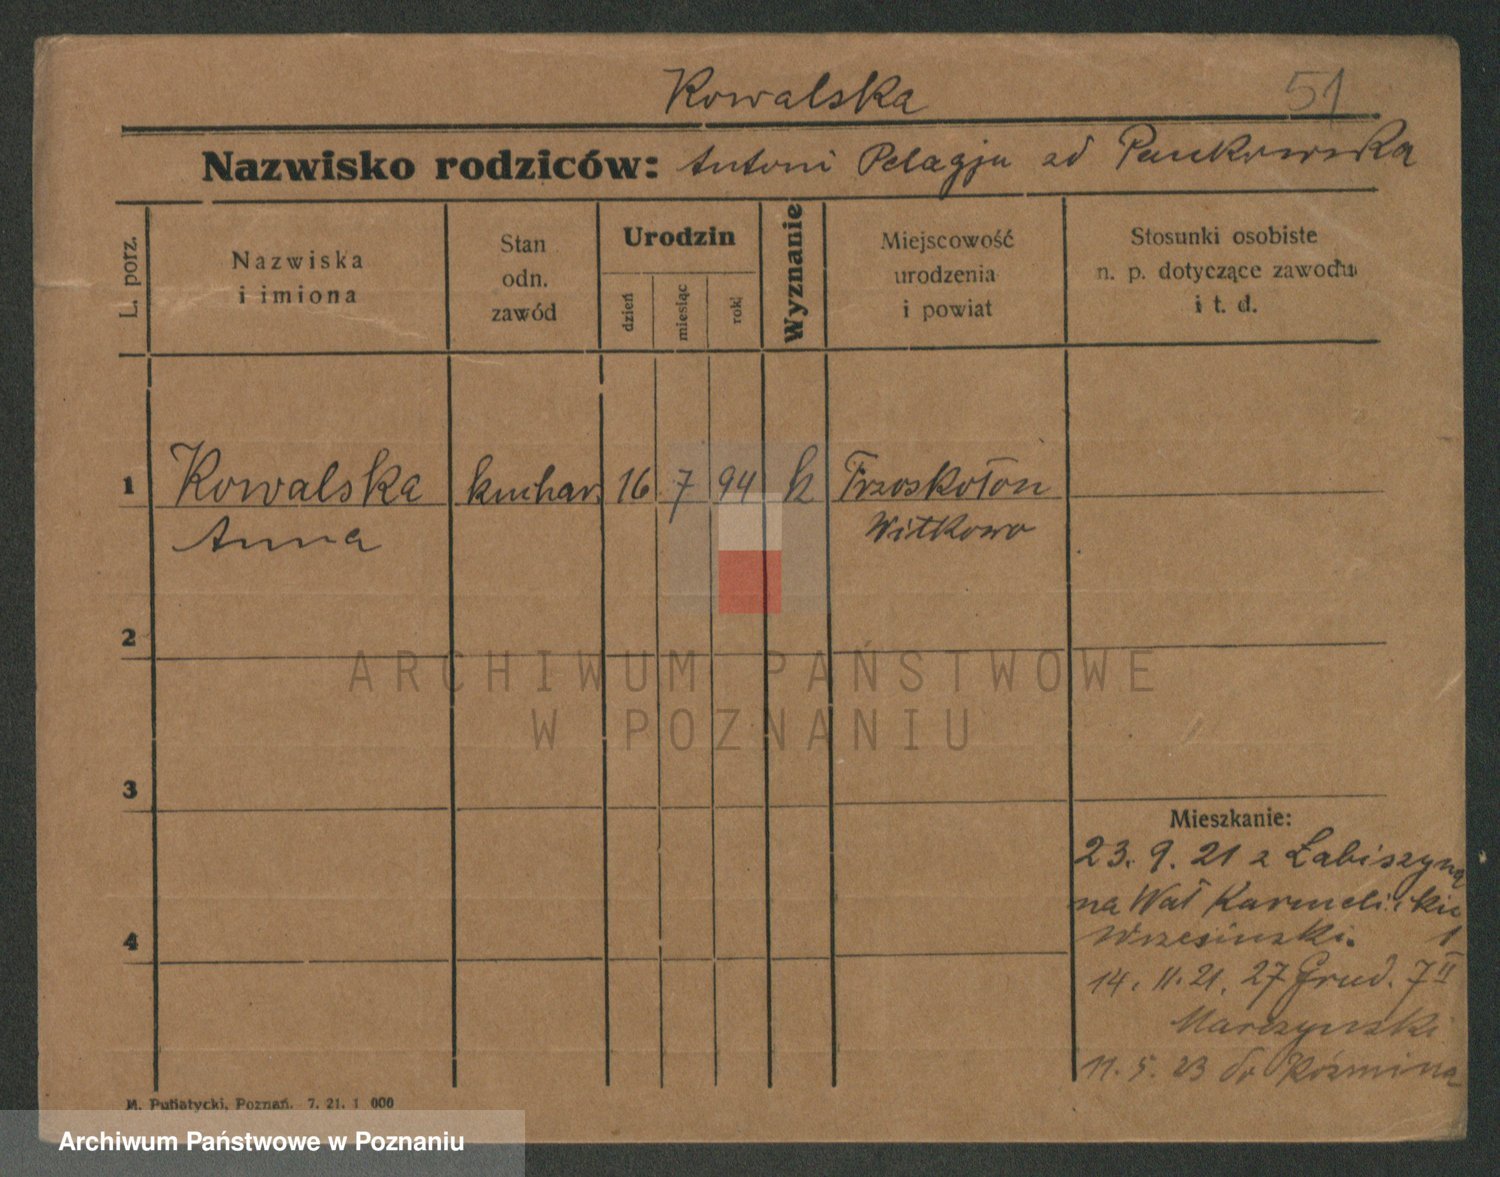 Kowalska 51
Nazwisko rodziców: Antoni Pelagju zd Pankowska
L. porz.
Nazwiska
i imiona
Stan
odn.
zawód
Urodzin
dzień
miesiąc
rok
Wyznanie
Miejscowość
urodzenia
i powiat
Stosunki osobiste
n. p. dotyczące zawodu
i t. d.
1 Kowalska kuchar. 16 7 94 k Trzoskołon
Anna Witkowo
2
ARCHIWUM PAŃSTWOWE
W POZNANIU
3
Mieszkanie:
23. 9. 21 z Łabiszyna
na Wał Karmelicki
Wrzesinski. 1
4
14. 11. 21. 27 Grud. 7 II
Marczynski
11. 5. 23 do Koźmina
M. Putiatycki, Poznań. 7. 21. 1 000
Archiwum Państwowe w Poznaniu